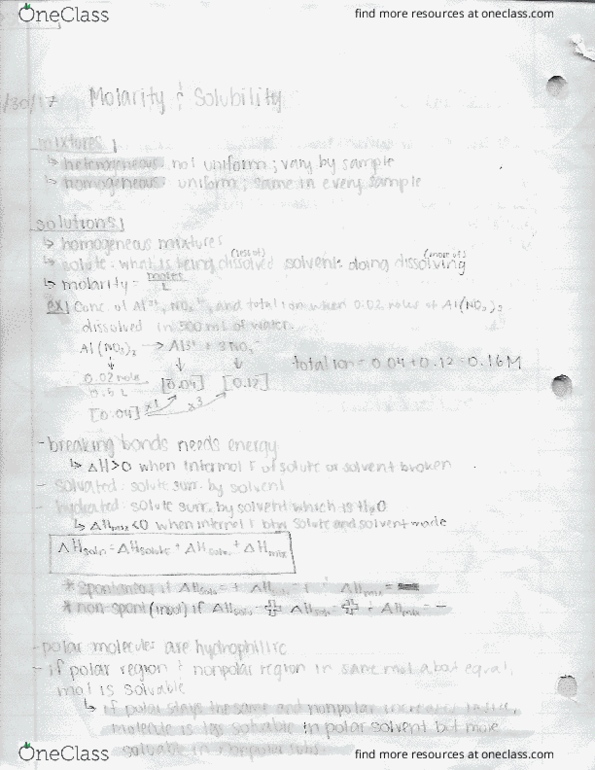 OneClass
find more resources at oneclass.com
/30/17 Molarity & Solubility
mixtures
↳ heterogeneous: not uniform; vary by sample
↳ homogeneous: uniform; same in every sample
solutions
↳ homogeneous mixtures
(less of) (more of)
↳ solute: what is being dissolved solvent: doing dissolving
↳ molarity = moles/L
ex) Conc of Al³⁺, NO₃¹⁻, and total ion when 0.02 moles of Al(NO₃)₃
dissolved in 500 mL of water.
Al(NO₃)₃ → Al³⁺ + 3NO₃⁻
↓ ↓ ↓ total ion = 0.04 + 0.12 = 0.16 M
0.02 mols/0.5 L [0.04] [0.12]
[0.04] x1 x3
- breaking bonds needs energy
↳ ΔH>0 when intermol F of solute or solvent broken
- solvated: solute surr. by solvent
- hydrated: solute surr. by solvent which is H₂O
↳ ΔHmix<0 when intermol F btw solute and solvent made
ΔHsoln = ΔHsolute + ΔHsolv. + ΔHmix
* spontaneous if ΔH = + ΔH = + ΔHmix =
* non-spont (insol) if ΔH = + ΔH = + ; ΔHmix = -
- polar molecules are hydrophilic
- if polar region & nonpolar region in same mol about equal,
mol is solvable
↳ if polar stays the same and nonpolar increases
molecule is less solvable in polar solvent but more
solvable in nonpolar
OneClass
find more resources at oneclass.com